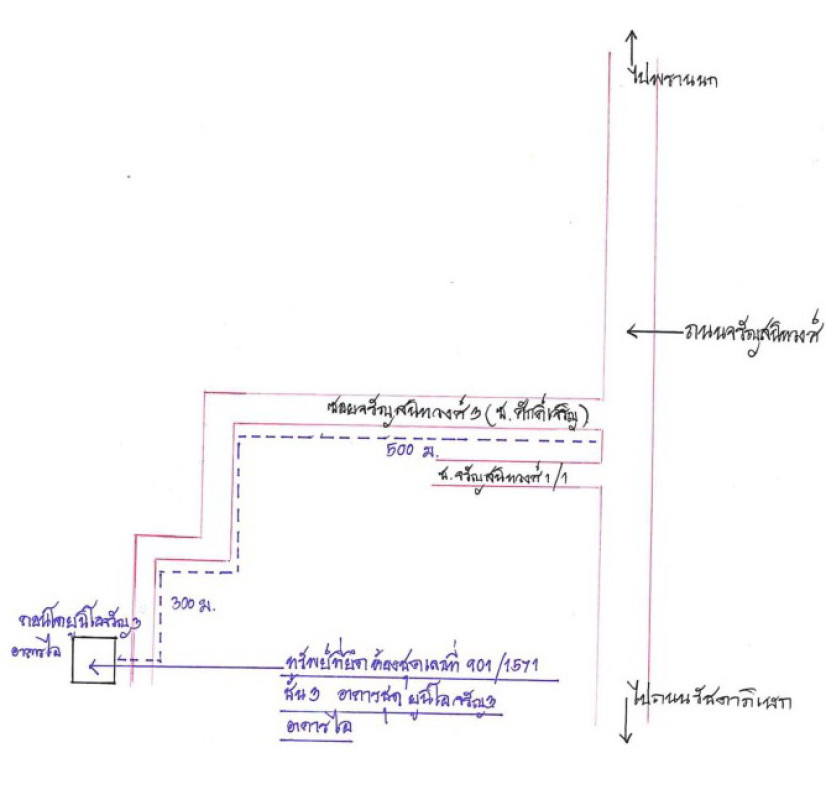 ไปพรานนก
ถนนจรัญสนิทวงศ์
ซอยจรัญสนิทวงศ์ 3 (ซ.ศักดิ์เจริญ)
500 ม.
ซ.จรัญสนิทวงศ์ 1/1
300 ม.
คอนโดยูนิโอจรัญ 3
อาคารไอ
ทรัพย์ที่ยึด ห้องชุดเลขที่ 901/1571
ชั้น 3 อาคารชุด ยูนิโอ จรัญ 3
อาคาร ไอ
ไปถนนรัชดาภิเษก